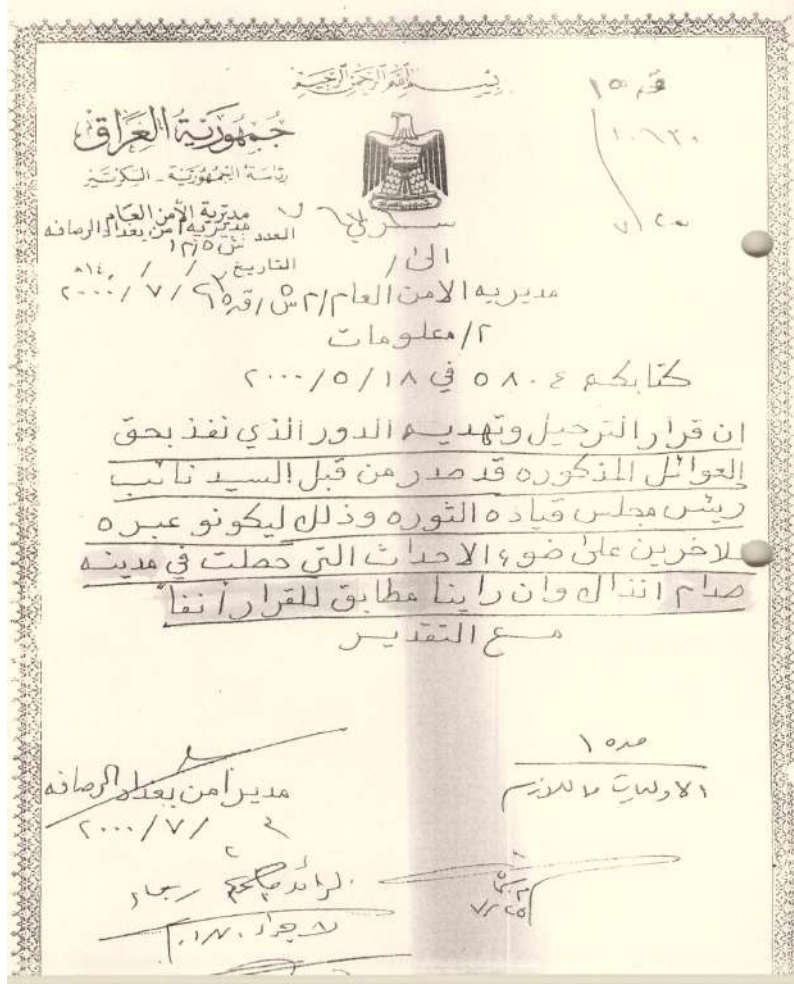 بسم الله الرحمن الرحيم
جمهورية العراق
رئاسة الجمهورية - السكرتير
مديرية الأمن العام
مديريه امن بغداد الرصافه
العدد
التاريخ / / ١٤هـ
٢٠٠٠/٧/
١٠٦٣٠
٧/٢٠
الى /
مديريه الامن العام/
م/ معلومات
كتابكم ٥٨٠٤ في ٢٠٠٠/٥/١٨
ان قرار الترحيل وتهديم الدور الذي نفذ بحق
العوائل المذكوره قد صدر من قبل السيد نائب
رئيس مجلس قياده الثوره وذلك ليكونو عبره
للاخرين على ضوء الاحداث التي حصلت في مدينه
صدام انذاك وان راينا مطابق للقرار أنفاً
مع التقدير
مدير امن بغداد الرصافه
٢٠٠٠/٧/
الاوليات
الرائد
٧/٢٥